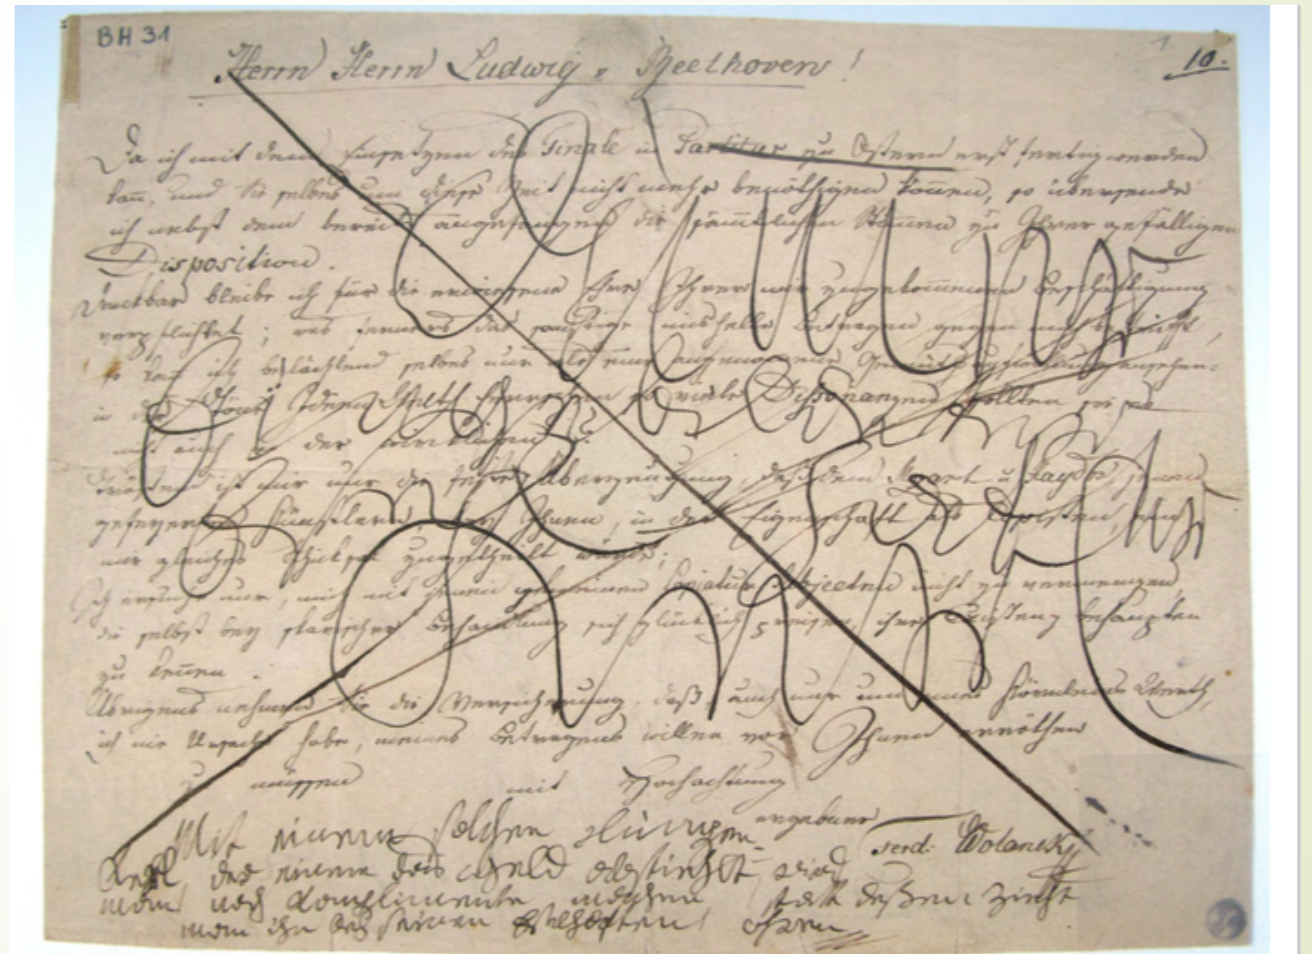 BH 31
10.
Herrn Herrn Ludwig v Beethoven!
Da ich mit dem Einsetzen des Finale in Partitur zu Ostern erst fertig werden
kann, und Sie selbes um diese Zeit nicht mehr benöthigen können, so übersende
ich nebst dem bereits angefangenen die sämmtlichen Stimmen zu Ihrer gefälligen
Disposition.
Dankbar bleibe ich für die erwiesene Ehre Ihrer mir zugekommenen Beschäftigung
verpflichtet; was ferners das sonstige mishellige Betragen gegen mich betrifft,
so kann ich belächlend selbes nur als eine angenommene ansehen:
in der Töne Ideen Welth herrschen so viele Dissonanzen sollten sie
nicht auch in der wirklichen?
Tröstend ist mir nur die feste Überzeugung, daß dem Mozart u Haydn, jenen
gefeyerten Künstlern, bey Ihnen, in der Eigenschaft als Copisten, ein
mir gleiches Schicksal zugetheilt würde;
Ich ersuche nur, mich mit jenen gemeinen Copiatur Subjecten nicht zu vermengen,
die selbst bey sklavischer Behandlung sich glücklich preisen, ihre Existenz behaupten
zu können.
Übrigens nehmen Sie die Versicherung, daß auch nur um eines Körnleins Werth,
ich nie Ursache habe, meines Betragens willen vor Ihnen erröthen
zu müssen
mit Hochachtung
ergebner
Ferd: Wolanek
Dummer
Mit einem solchen Lumpen
Kerl, der einem das Geld abstiehlt, wird
man noch Komplimente machen, statt deßen zieht
man ihn bej seinen Eselhaften ohren